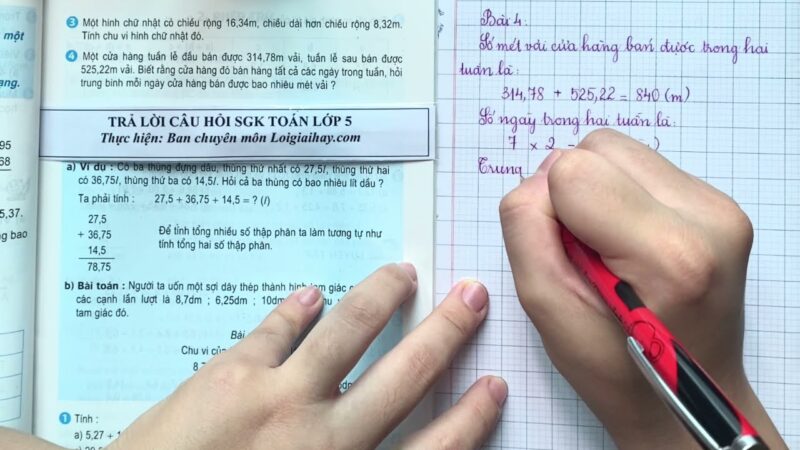 một
ang.
95
68
5,37.
g bao
3 Một hình chữ nhật có chiều rộng 16,34m, chiều dài hơn chiều rộng 8,32m.
Tính chu vi hình chữ nhật đó.
4 Một cửa hàng tuần lễ đầu bán được 314,78m vải, tuần lễ sau bán được
525,22m vải. Biết rằng cửa hàng đó bán hàng tất cả các ngày trong tuần, hỏi
trung bình mỗi ngày cửa hàng bán được bao nhiêu mét vải ?
TRẢ LỜI CÂU HỎI SGK TOÁN LỚP 5
Thực hiện: Ban chuyên môn Loigiaihay.com
a) Ví dụ : Có ba thùng đựng dầu, thùng thứ nhất có 27,5l, thùng thứ hai
có 36,75l, thùng thứ ba có 14,5l. Hỏi cả ba thùng có bao nhiêu lít dầu ?
Ta phải tính : 27,5 + 36,75 + 14,5 = ? (l)
27,5
+ 36,75
14,5
78,75
Để tính tổng nhiều số thập phân ta làm tương tự như
tính tổng hai số thập phân.
b) Bài toán : Người ta uốn một sợi dây thép thành hình tam giác
các cạnh lần lượt là 8,7dm ; 6,25dm ; 10dm
tam giác đó.
Bài
Chu vi của
8
dm
1 Tính :
a) 5,27 + 1
Bài 4:
Số mét vải cửa hàng bán được trong hai
tuần là:
314,78 + 525,22 = 840 (m)
Số ngày trong hai tuần là:
7 x 2 = )
Trung